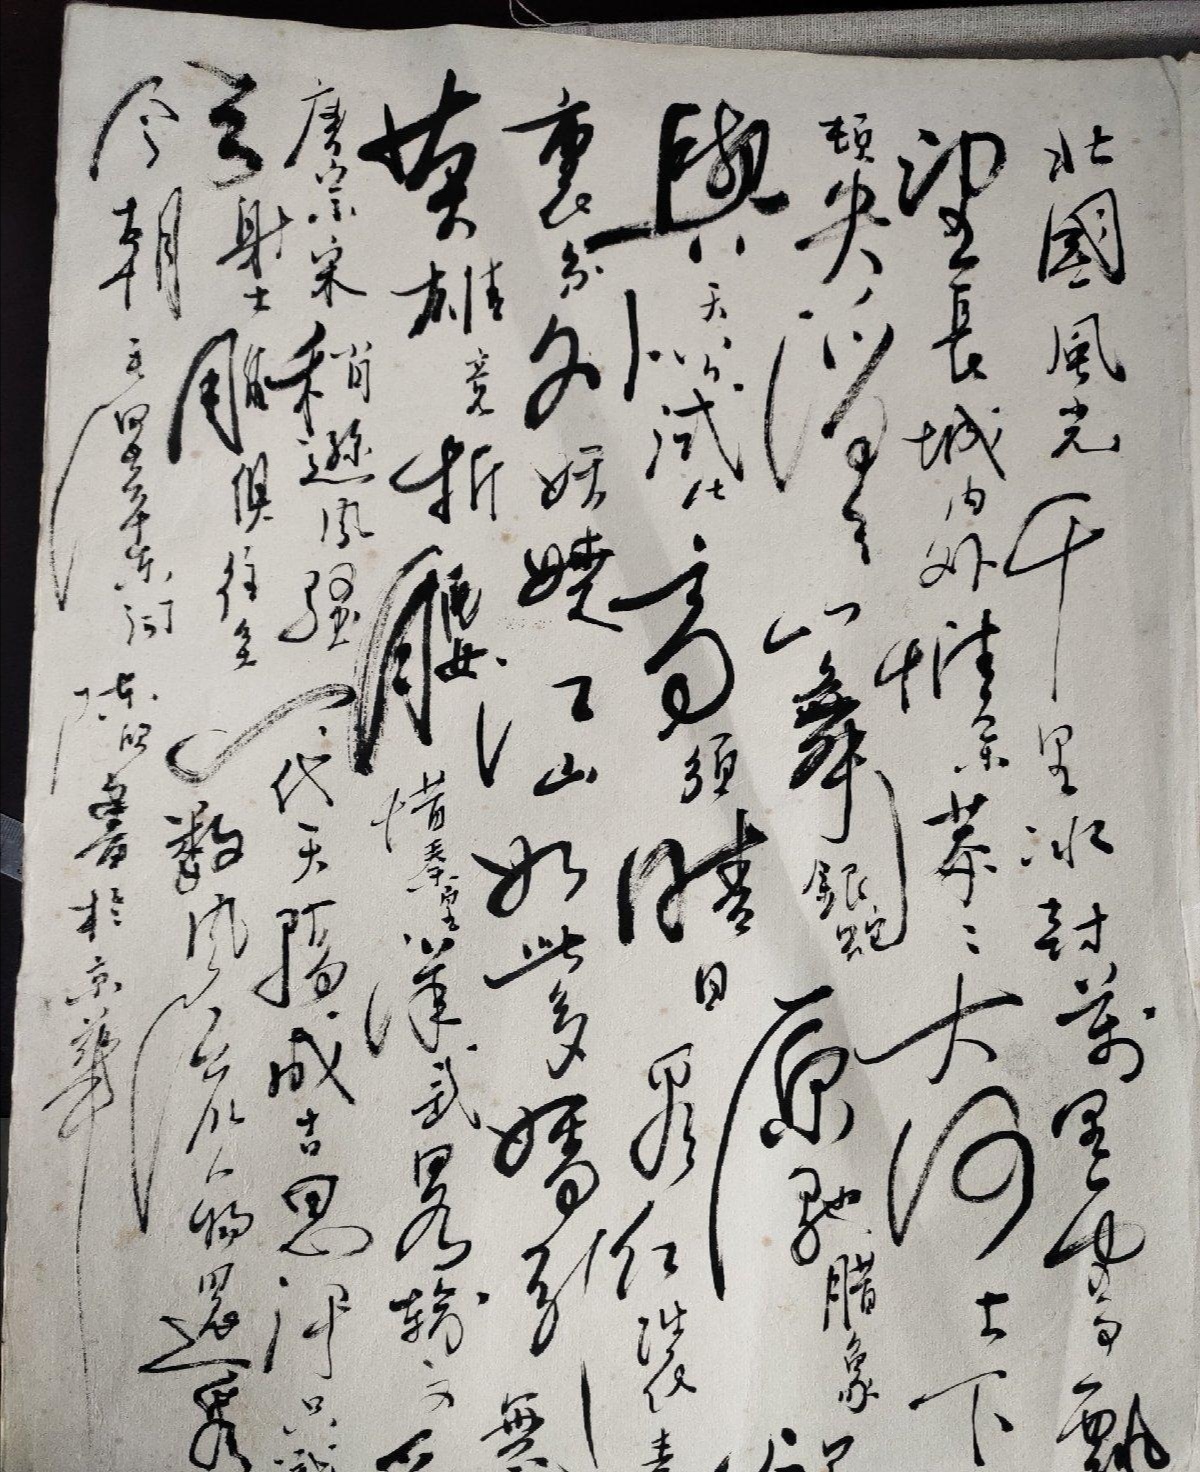 北國風光千里冰封萬里雪飄
望長城内外惟余莽〻大河上下
頓失滔〻山舞銀蛇原馳腊象
與天公試比高須晴日看红装素
裹分外妖嬈江山如此多嬌引無
英雄竞折腰惜秦皇漢武畧输文
唐宗宋祖稍遜風騷一代天驕成吉思汗只識
弓射大雕俱往矣數風流人物還看
今朝
書於京華